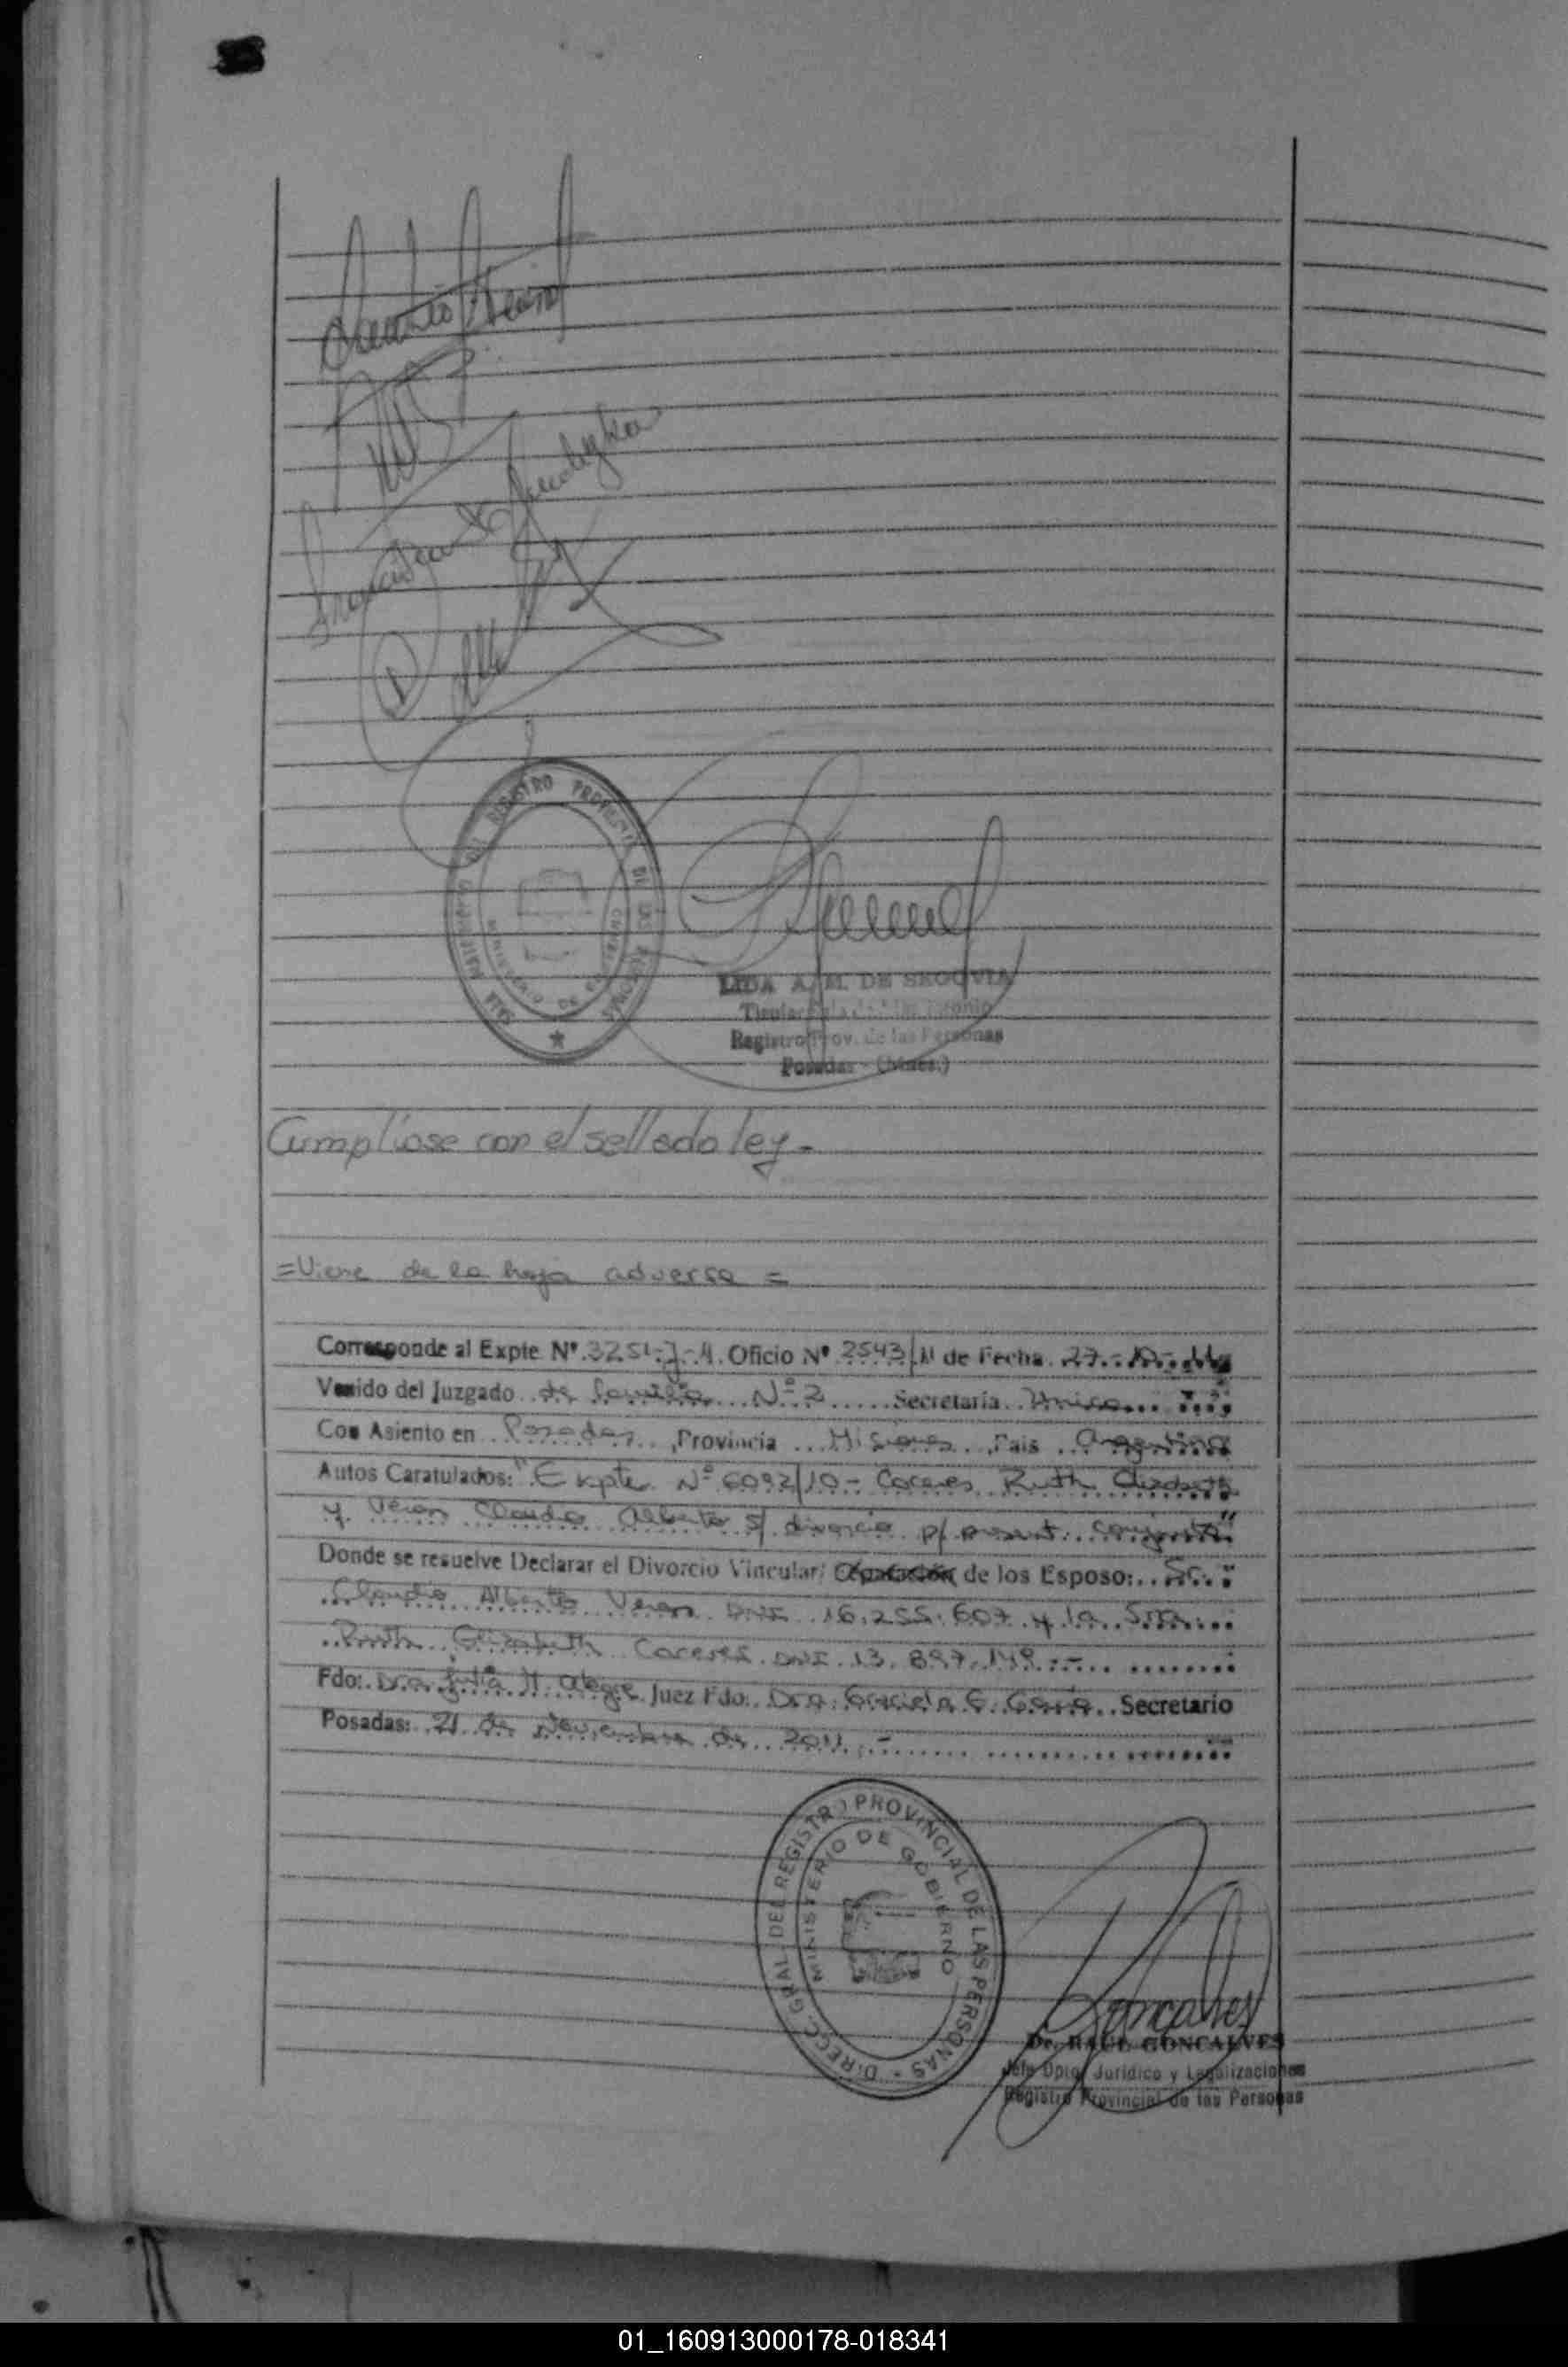 LIDA A. M. DE SEGOVIA
Registro Prov. de las Personas
Posadas - (Mnes.)
Cumpliose con el sellado ley.-
=Viene de la hoja adversa =
Corresponde al Expte Nº 3251-J-11. Oficio Nº 2543/11 de Fecha 27-10-11
Venido del Juzgado de Familia Nº 2 Secretaria Unica
Con Asiento en Posadas, Provincia Misiones, Pais Argentina
Autos Caratulados: "Expte Nº 6092/10 - Caceres Ruth Elizabeth
y Veron Claudio Alberto s/ divorcio p/ present. conjunta"
Donde se resuelve Declarar el Divorcio Vincular/ de los Esposo: Sr.
Claudio Alberto Veron DNI 16.255.607 y la Sra.
Ruth Elizabeth Caceres DNI 13.897.149.-
Fdo: Dra. Julia H. Alegre Juez Fdo: Dra. Graciela G. Secretario
Posadas: 21 de Noviembre de 2011.-
DIRECC. GRAL. DEL REGISTRO PROVINCIAL DE LAS PERSONAS
MINISTERIO DE GOBIERNO
Goncalves
Dr. RAUL GONCALVES
Jefe Dpto. Jurídico y Legalizaciones
Registro Provincial de las Personas
01_160913000178-018341